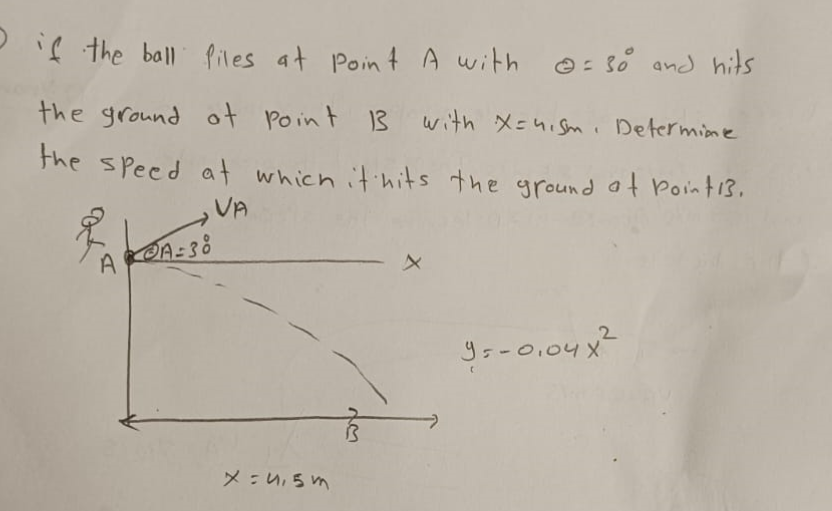 if the ball files at point A with θ = 30° and hits
the ground at point B with x = 4,5m. Determine
the speed at which it hits the ground at point B.
VA
A θA=30°
x
y = -0.04x²
B
x = 4,5m